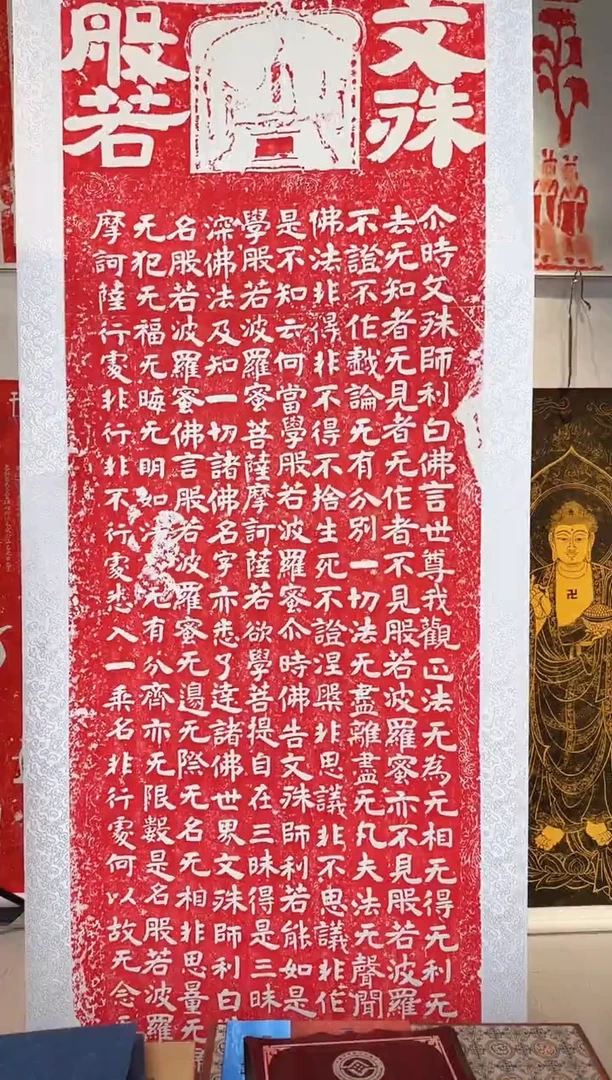 文殊
般若
尒時文殊師利白佛言世尊我觀正法无為无相无得无利无
去无知者无見者无作者不見般若波羅蜜亦不見般若波羅
不證不作戲論无有分別一切法无盡離盡无凡夫法无聲聞
佛法非得非不得不捨生死不證涅槃非思議非不思議非作
是不知云何當學般若波羅蜜尒時佛告文殊師利若能如是
學般若波羅蜜菩薩摩訶薩若欲學菩提自在三昧得是三昧
深佛法及知一切諸佛名字亦悉了達諸佛世界文殊師利白
名般若波羅蜜佛言般若波羅蜜无邊无際无名无相非思量无
无犯无福无晦无明如法无有分齊亦无限數是名般若波羅
摩訶薩行處非行非不行處悉入一乘名非行處何以故无念
卍